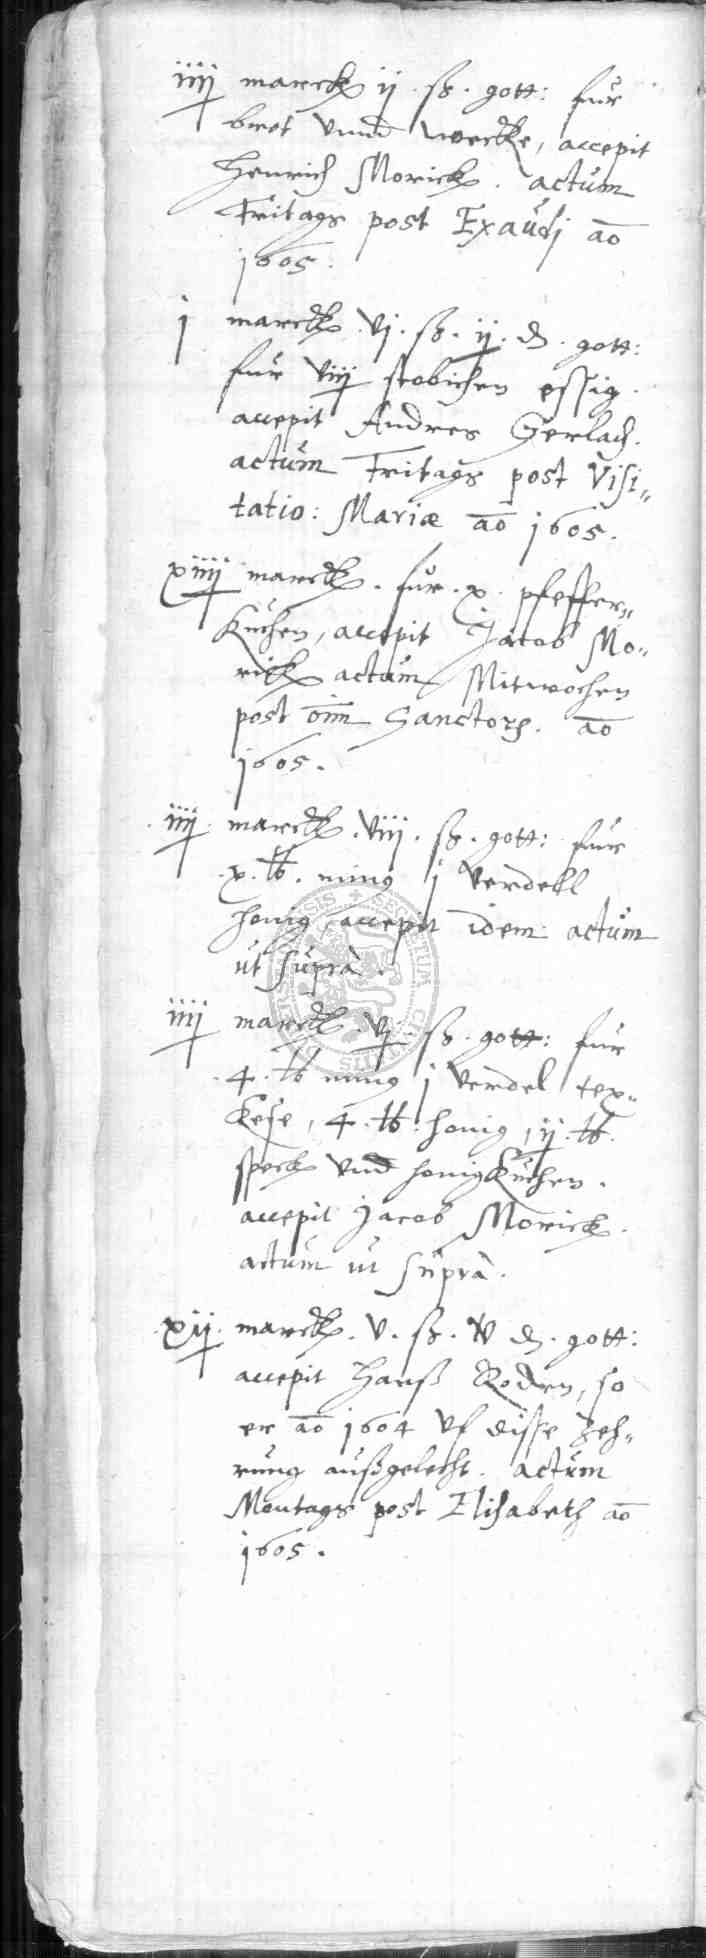 iiij marck ij ß. gott: fur
brot vnnd wecke, accepit
Henrich Morick. actum
Fritags post Exaudi ao
1605.
j marck. vj. ß. ij. d. gott:
fur viij stobichen essig.
accepit Andres Gerlach.
actum Fritags post Visi„
tatio: Mariæ ao 1605.
xiiij marck. fur. x. pfeffer„
kuchen, accepit Jacob Mo„
rick actum Mitwochen
post oim Sanctorum. ao
1605.
iiij marck. viij. ß. gott: fur
x. lb. ming j verdell
honig, accepit idem actum
ut supra.
iiij marck. vj. ß. gott: fur
4. lb ming j verdel tex„
kese, 4. lb. honig, ij. lb.
speck vnd honigkuchen.
accepit Jacob Morick.
actum ut supra.
xij. marck. v. ß. d. gott:
accepit Hanß Roden, so
er ao 1604 vf disse zeh„
rung außgelecht. actum
Montags post Elisabeth ao
1605.